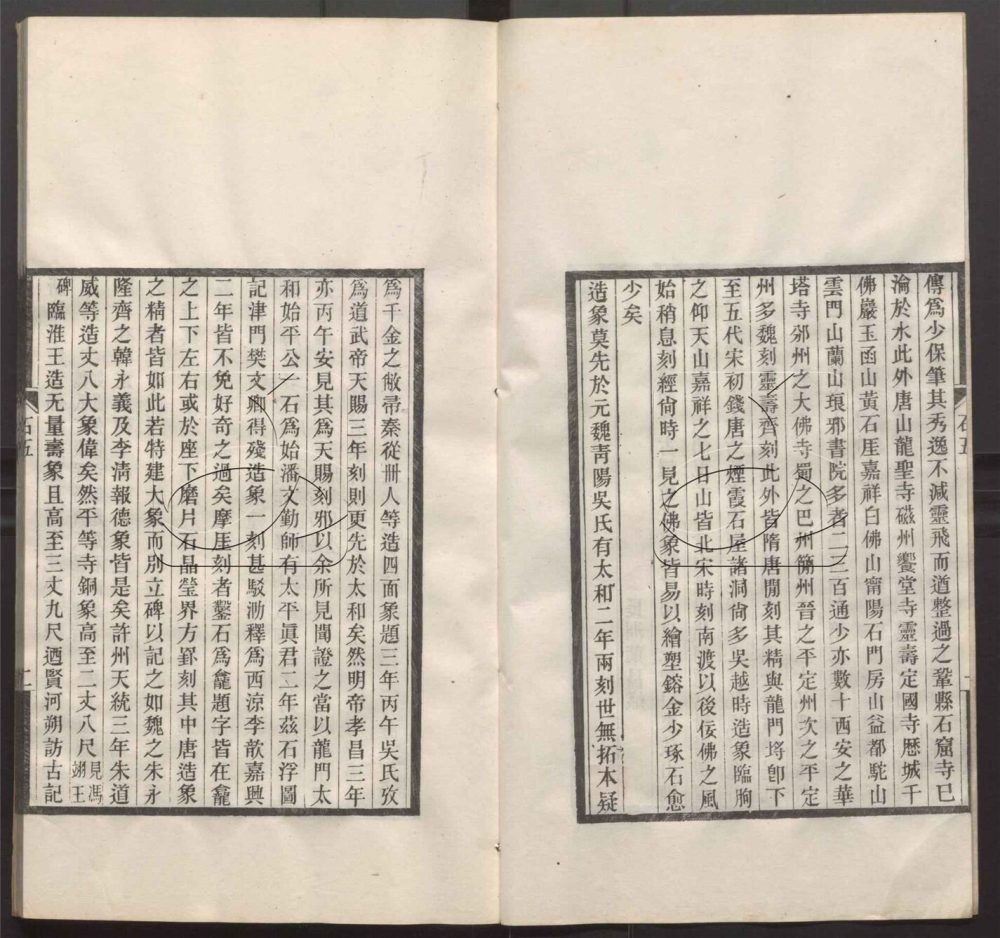 傳爲少保筆其秀逸不減靈飛而遒整過之鞏縣石窟寺已
淪於水此外唐山龍聖寺磁州響堂寺靈壽定國寺歷城千
佛巖玉函山黃石厓嘉祥白佛山甯陽石門房山益都駝山
雲門山蘭山琅邪書院多者二三百通少亦數十西安之華
塔寺邠州之大佛寺蜀之巴州簡州晉之平定州次之平定
州多魏刻靈壽齊刻此外皆隋唐閒刻其精與龍門埒卽下
至五代宋初錢唐之煙霞石屋諸洞尚多吳越時造象臨朐
之仰天山嘉祥之七日山皆北宋時刻南渡以後佞佛之風
始稍息刻經尙時一見之佛象皆易以繪塑鎔金少琢石愈
少矣
造象莫先於元魏靑陽吳氏有太和二年兩刻世無拓本疑
石五
爲千金之敝帚秦從卌人等造四面象題三年丙午吳氏攷
爲道武帝天賜三年刻則更先於太和矣然明帝孝昌三年
亦丙午安見其爲天賜刻邪以余所見聞證之當以龍門太
和始平公一石爲始潘文勤師有太平眞君二年茲石浮圖
記津門樊文卿得殘造象一刻甚駁泐釋爲西涼李歆嘉興
二年皆不免好奇之過矣摩厓刻者鑿石爲龕題字皆在龕
之上下左右或於座下磨片石晶瑩界方罫刻其中唐造象
之精者皆如此若特建大象而別立碑以記之如魏之朱永
隆齊之韓永義及李淸報德象皆是矣許州天統三年朱道
威等造丈八大象偉矣然平等寺銅象高至二丈八尺見馮翊王
碑臨淮王造无量壽象且高至三丈九尺迺賢河朔訪古記
石五